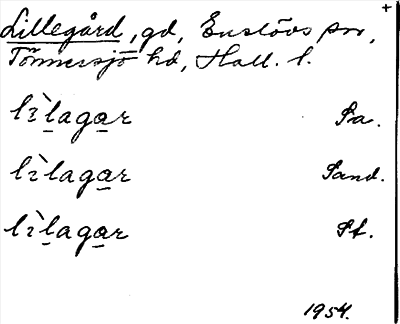 +
Lillegård, gd, Enslövs sn,
Tönnersjö hd, Hall. l.
lìlagar Sa.
lìlagar Sand.
lìlagar St.
1954.